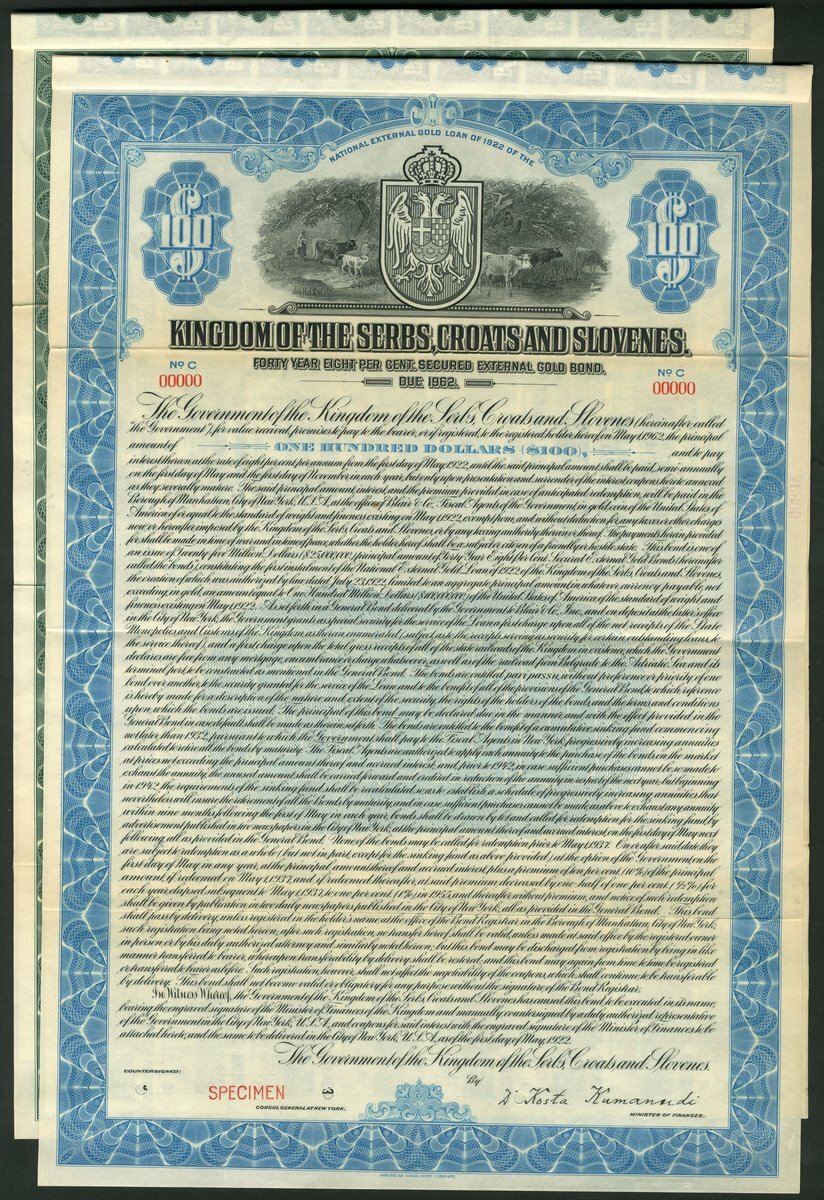 NATIONAL EXTERNAL GOLD LOAN OF 1922 OF THE
100
100
KINGDOM OF THE SERBS, CROATS AND SLOVENES.
FORTY YEAR EIGHT PER CENT. SECURED EXTERNAL GOLD BOND.
DUE 1962.
No C
00000
No C
00000
The Government of the Kingdom of the Serbs, Croats and Slovenes (hereinafter called
"the Government"), for value received, promises to pay to the bearer, or if registered, to the registered holder hereof, on May 1, 1962, the principal
amount of ONE HUNDRED DOLLARS ($100), and to pay
interest thereon at the rate of eight per cent per annum from the first day of May 1922, until the said principal amount shall be paid, semi-annually
on the first day of May and the first day of November in each year, but only upon presentation and surrender of the interest coupons hereto annexed
as they severally mature. The said principal amount, interest, and the premium provided in case of anticipated redemption, will be paid in the
Borough of Manhattan, City of New York, U.S.A., at the office of Blair & Co., Fiscal Agents of the Government, in gold coin of the United States of
America of or equal to the standard of weight and fineness existing on May 1, 1922, exempt from, and without deduction for any taxes or other charges
now or hereafter imposed by the Kingdom of the Serbs, Croats and Slovenes, or by any taxing authority therein or thereof. The payments herein provided
for shall be made in time of war and in time of peace, whether the holder hereof shall be a subject or citizen of a friendly or hostile state. This bond is one of
an issue of Twenty-five Million Dollars ($25,000,000) principal amount of Forty Year Eight per Cent. Secured External Gold Bonds (hereinafter
called the bonds), constituting the first instalment of the National External Gold Loan of 1922 of the Kingdom of the Serbs, Croats and Slovenes,
the creation of which was authorized by law dated July 23, 1922, limited to an aggregate principal amount, in whatever currency payable, not
exceeding, in gold, an amount equal to One Hundred Million Dollars ($100,000,000) of the United States of America of the standard of weight and
fineness existing on May 1, 1922. As set forth in a General Bond delivered by the Government to Blair & Co., Inc., and on deposit at the latter's office
in the City of New York, the Government grants as special security for the service of the Loan a first charge upon all of the net receipts of the State
Monopolies and Customs of the Kingdom as therein enumerated (subject, as to the receipts serving as security for certain outstanding loans, to
the service thereof), and a first charge upon the total gross receipts of all of the state railroads of the Kingdom in existence, which the Government
declares are free from any mortgage, encumbrance or charge whatsoever, as well as of the railroad from Belgrade to the Adriatic Sea and its
terminal port to be constructed as mentioned in the General Bond. The bonds are entitled pari passu, without preference or priority of one
bond over another, to the security granted for the service of the Loan and to the benefit of all of the provisions of the General Bond, to which reference
is hereby made for a description of the nature and extent of the security, the rights of the holders of the bonds, and the terms and conditions
upon which the bonds are issued. The principal of this bond may be declared due in the manner and with the effect provided in the
General Bond in case default shall be made as therein set forth. The bonds are entitled to the benefit of a cumulative sinking fund commencing
not later than 1932, pursuant to which the Government shall pay to the Fiscal Agents in New York, progressively increasing annuities
calculated to retire all the bonds by maturity. The Fiscal Agents are authorized to apply each annuity to the purchase of the bonds on the market
at prices not exceeding the principal amount thereof and accrued interest, and, prior to 1942, in case sufficient purchases cannot be so made to
exhaust the annuity, the unused amount shall be carried forward and credited in reduction of the annuity in respect of the next year, but beginning
in 1942 the requirements of the sinking fund shall be recalculated so as to establish a schedule of progressively increasing annuities that
nevertheless will insure the retirement of all the Bonds by maturity, and in case sufficient purchases cannot be made as above to exhaust any annuity
within nine months following the first of May in each year, bonds shall be drawn by lot and called for redemption for the sinking fund, by
advertisement published in two newspapers in the City of New York, at the principal amount thereof and accrued interest, on the first day of May next
following, all as provided in the General Bond. None of the bonds may be called for redemption prior to May 1, 1937. On or after said date they
are subject to redemption as a whole (but not in part, except for the sinking fund as above provided) at the option of the Government on the
first day of May in any year, at the principal amount thereof and accrued interest, plus a premium of ten per cent (10%) of the principal
amount, if redeemed on May 1, 1937, and, if redeemed thereafter, at said premium decreased by one-half of one per cent (½%) for
each year elapsed subsequent to May 1, 1937, to one per cent, (1%) in 1955, and thereafter without premium, and notice of such redemption
shall be given by publication in two daily newspapers published in the City of New York, all as provided in the General Bond. This bond
shall pass by delivery, unless registered in the holder's name at the office of the Bond Registrar in the Borough of Manhattan, City of New York,
such registration being noted hereon; after such registration, no transfer hereof shall be valid, unless made at said office by the registered owner
in person or by his duly authorized attorney and similarly noted hereon; but this bond may be discharged from registration by being in like
manner transferred to bearer, whereupon transferability by delivery shall be restored, and this bond may again from time to time be registered
or transferred to bearer as before. Such registration, however, shall not affect the negotiability of the coupons, which shall continue to be transferable
by delivery. This bond shall not become valid or obligatory for any purpose without the signature of the Bond Registrar.
In Witness Whereof, the Government of the Kingdom of the Serbs, Croats and Slovenes has caused this bond to be executed in its name,
bearing the engraved signature of the Minister of Finances of the Kingdom and manually countersigned by a duly authorized representative
of the Government in the City of New York, U.S.A., and coupons for said interest with the engraved signature of the Minister of Finances to be
attached hereto, and the same to be delivered in the City of New York, U.S.A., as of the first day of May, 1922.
The Government of the Kingdom of the Serbs, Croats and Slovenes.
COUNTERSIGNED:
By
SPECIMEN
Dr Kosta Kumanudi
CONSUL GENERAL AT NEW YORK.
MINISTER OF FINANCES.
AMERICAN BANK NOTE COMPANY.